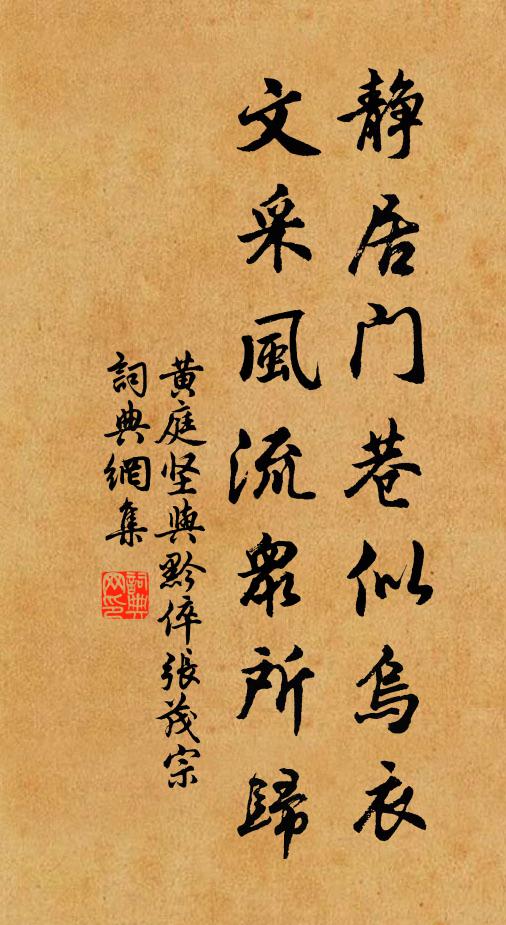 静居门巷似烏衣
文采風流衆所歸
黄庭坚與黔倅張茂宗
詞典網集
詞典网印